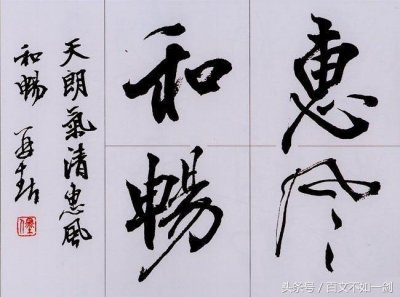 惠风
和暢
天朗氣清惠風
和暢
头条号/百文不如一剑